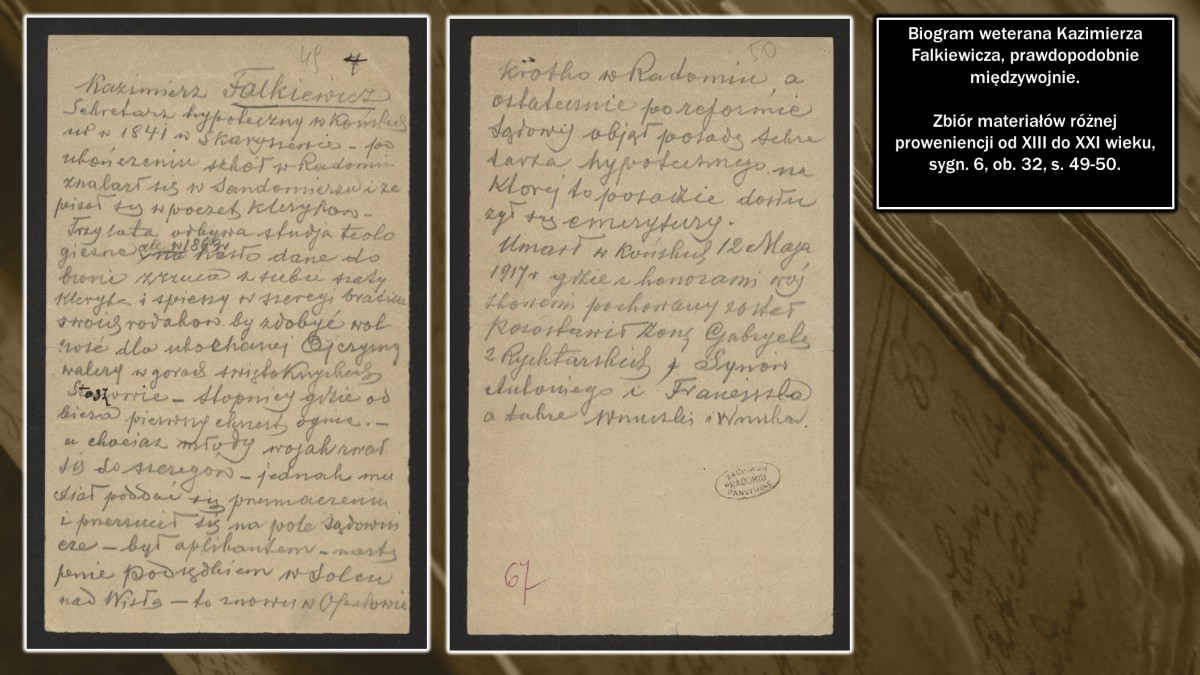 49 4
Kazimierz Falkiewicz
Sekretarz hypoteczny w Końskich
ur w 1841 w Skaryszewie – po
ukończeniu szkół w Radomiu
znalazł się w Sandomierzu i za
pisał się w poczet kleryków –
Trzy lata odbywa studja teolo
giczne ale w 1863 r na hasło dane do
broni zrzuca z siebie szaty
kleryka i spieszy w szeregi braci
swoich rodaków by zdobyć wol
ność dla ukochanej Ojczyzny
walczy w górach świętokrzyskich
Staszowie – Stopnicy gdzie od
biera pierwszy chrzest ognia. –
a chociaż młody wojak rwał
się do szeregów – jednak mu
siał poddać się przeznaczeniu
i przerzucił się na pole sądowni
cze – był aplikantem – nastę
pnie Podsędkiem w Solcu
nad Wisłą – to znowu w Opatowie
50
krótko w Radomiu, a
ostatecznie po reformie
Sądowej objął posadę sekre
tarza hypotecznego na
której to posadzie dosłu
żył się emerytury.
Umarł w Końskich 12 Maja
1917 r gdzie z honorami woj
skowemi pochowany został
Pozostawił żonę Gabryelę
z Rychtarskich, Synów
Antoniego i Franciszka
a także Wnuczki i Wnuka.
ARCHIWUM
W RADOMIU
PAŃSTWOWE
67
Biogram weterana Kazimierza
Falkiewicza, prawdopodobnie
międzywojnie.
Zbiór materiałów różnej
proweniencji od XIII do XXI wieku,
sygn. 6, ob. 32, s. 49-50.